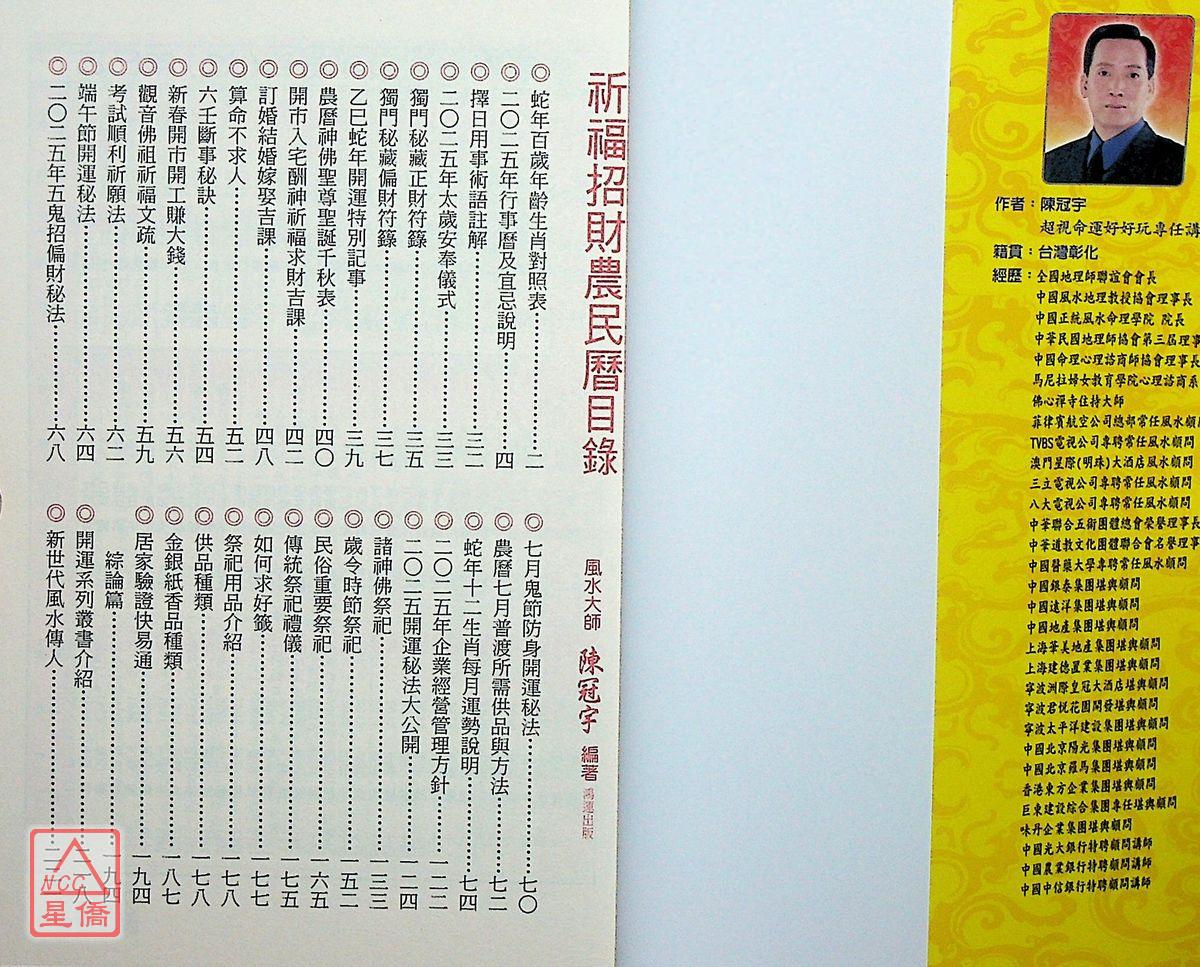 祈福招財農民曆目錄
風水大師 陳冠宇 編著 鴻運出版
◎蛇年百歲年齡生肖對照表⋯⋯二
◎二〇二五年行事曆及宜忌說明⋯⋯四
◎擇日用事術語註解⋯⋯三二
◎二〇二五年太歲安奉儀式⋯⋯三三
◎獨門秘藏正財符籙⋯⋯三五
◎獨門秘藏偏財符籙⋯⋯三七
◎乙巳蛇年開運特別記事⋯⋯三九
◎農曆神佛聖尊聖誕千秋表⋯⋯四〇
◎開市入宅酬神祈福求財吉課⋯⋯四二
◎訂婚結婚嫁娶吉課⋯⋯四八
◎算命不求人⋯⋯五二
◎六壬斷事秘訣⋯⋯五四
◎新春開市開工賺大錢⋯⋯五六
◎觀音佛祖祈福文疏⋯⋯五九
◎考試順利祈願法⋯⋯六二
◎端午節開運秘法⋯⋯六四
◎二〇二五年五鬼招偏財秘法⋯⋯六八
◎七月鬼節防身開運秘法⋯⋯七〇
◎農曆七月普渡所需供品與方法⋯⋯七二
◎蛇年十二生肖每月運勢說明⋯⋯七四
◎二〇二五年企業經營管理方針⋯⋯一二二
◎二〇二五開運秘法大公開⋯⋯一二四
◎諸神佛祭祀⋯⋯一三三
◎歲令時節祭祀⋯⋯一五二
◎民俗重要祭祀⋯⋯一六五
◎傳統祭祀禮儀⋯⋯一七五
◎如何求好籤⋯⋯一七七
◎祭祀用品介紹⋯⋯一七八
◎供品種類⋯⋯一七八
◎金銀紙香品種類⋯⋯一八七
◎居家驗證快易通⋯⋯一九四
綜論篇⋯⋯一九四
◎開運系列叢書介紹⋯⋯
◎新世代風水傳人⋯⋯
NCC
星僑
作者：陳冠宇
超視命運好好玩專任講
籍貫：台灣彰化
經歷：全國地理師聯誼會會長
中國風水地理教授協會理事長
中國正統風水命理學院 院長
中華民國地理師協會第三屆理事
中國命理心理諮商師協會理事長
馬尼拉婦女教育學院心理諮商系
佛心禪寺住持大師
菲律賓航空公司總部常任風水顧
TVBS電視公司專聘常任風水顧問
澳門星際(明珠)大酒店風水顧問
三立電視公司專聘常任風水顧問
八大電視公司專聘常任風水顧問
中華聯合五術團體總會榮譽理事長
中華道教文化團體聯合會名譽理事
中國醫藥大學專聘常任風水顧問
中國銀泰集團堪輿顧問
中國遠洋集團堪輿顧問
中國地產集團堪輿顧問
上海華美地產集團堪輿顧問
上海建德置業集團堪輿顧問
寧波洲際皇冠大酒店堪輿顧問
寧波君悅花園開發堪輿顧問
寧波太平洋建設集團堪輿顧問
中國北京陽光集團堪輿顧問
中國北京羅馬集團堪輿顧問
香港東方企業集團堪輿顧問
巨東建設綜合集團專任堪輿顧問
味丹企業集團堪輿顧問
中國光大銀行特聘顧問講師
中國農業銀行特聘顧問講師
中國中信銀行特聘顧問講師